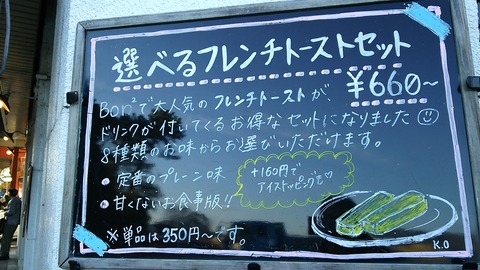 選べるフレンチトーストセット
¥660~
Bon²で大人気のフレンチトーストが、
ドリンクが付いてくるお得なセットになりました
8種類のお味からお選びいただけます。
・定番のプレーン味
・甘くないお食事版!!
+160円で
アイストッピングも♡
※単品は350円~です。
K.O